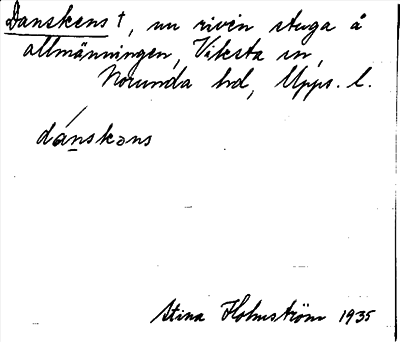 Danskens †, nu riven stuga å
allmänningen, Viksta sn,
Norunda hd, Upps. l.
dánskəns
Stina Holmström 1935